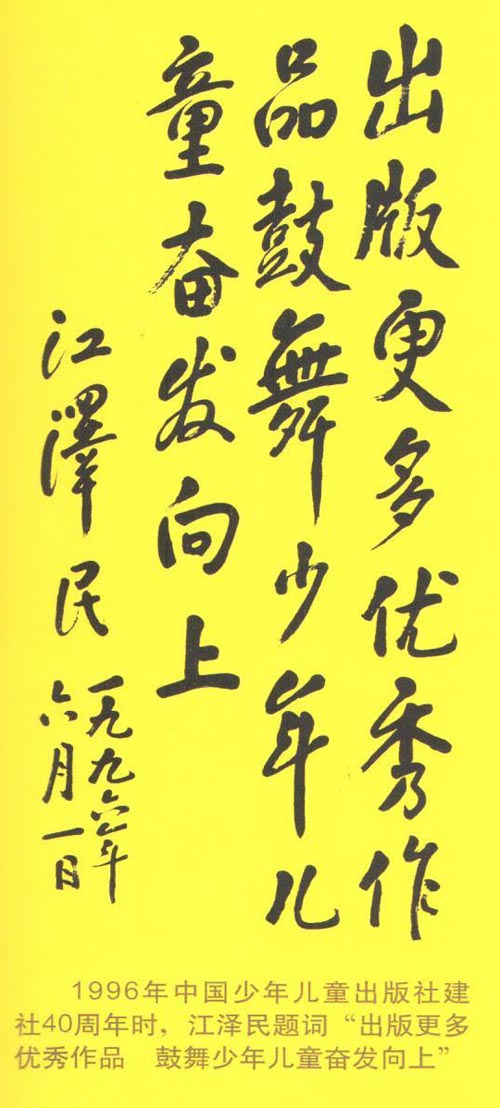 出版更多优秀作
品鼓舞少年儿
童奋发向上
江澤民
一九九六年
六月一日
1996年中国少年儿童出版社建
社40周年时，江泽民题词“出版更多
优秀作品　鼓舞少年儿童奋发向上”